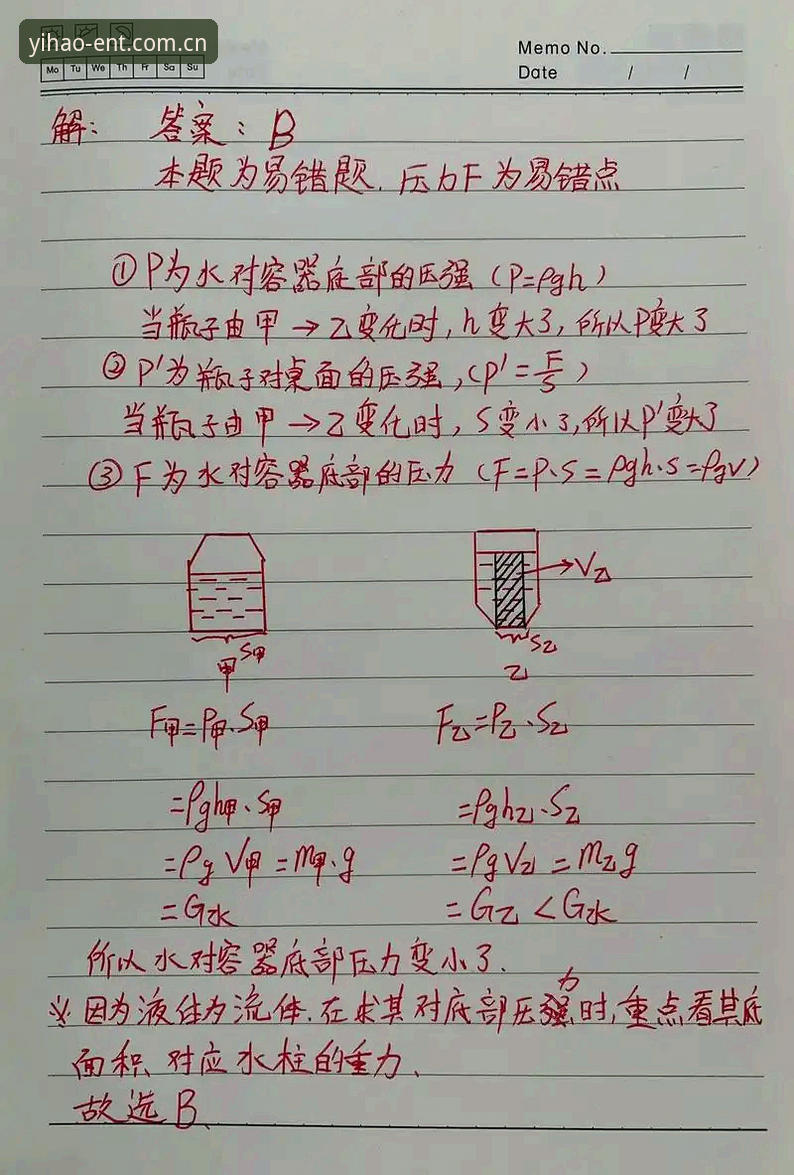 yihao-ent.com.cn
Memo No.
Mo Tu We Th Fr Sa Su
Date / /
解: 答案: B
本题为易错题.压力F为易错点
① P为水对容器底部的压强 (P=ρgh)
当瓶子由甲→乙变化时,h变大了,所以P变大了
② P'为瓶子对桌面的压强,(P'=F/S)
当瓶子由甲→乙变化时,S变小了,所以P'变大了
③ F为水对容器底部的压力 (F=P·S=ρgh·s=ρgv)
V乙
S甲 S乙
甲 乙
F甲=P甲·S甲 F乙=P乙·S乙
=ρgh甲·S甲 =ρgh乙·S乙
=ρgV甲=m甲·g =ρgV乙=m乙g
=G水 =G乙<G水
所以水对容器底部压力变小了.
力
※因为液体为流体.在求其对底部压强时,重点看其底
面积对应水柱的重力、
故选B、